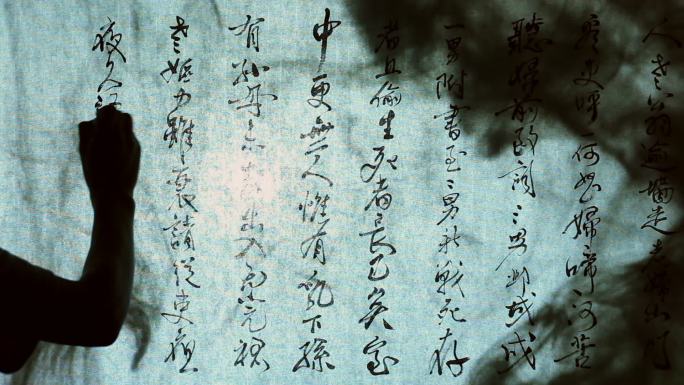 人老翁逾墙走老婦出门
看吏呼一何怒婦啼一何苦
聽婦前致詞三男鄴城戍
一男附書至二男新戰死存
者且偷生死者長已矣室
中更無人惟有乳下孫
有孫母未去出入無完裙
老嫗力雖衰請從吏
夜久